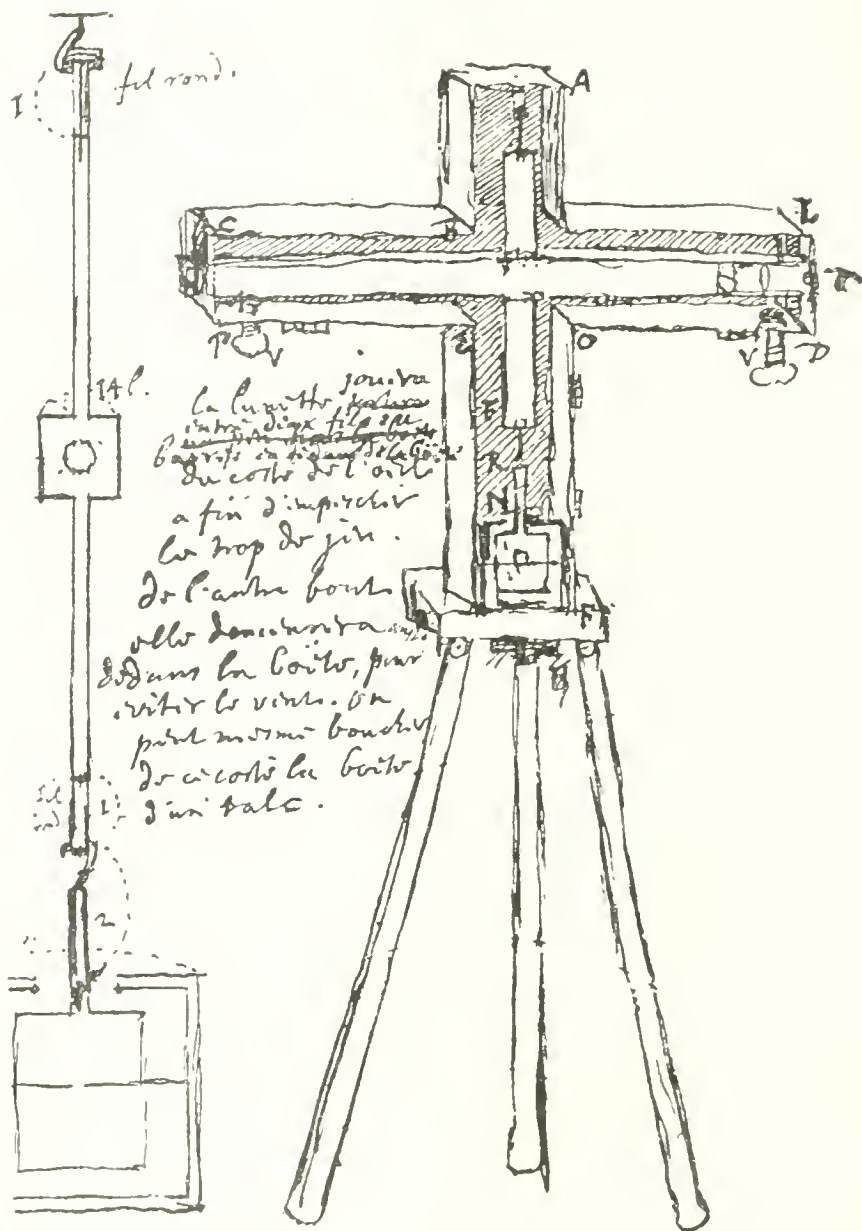 fil rond.
I
A
C
B
L
P
V
E
O
V
D
14 l.
jouera
la lunette
entre deux fils
du costé de l'oeil
a fin d'empescher
le trop de jeu.
de l'autre bout
elle demeurera
dedans la boëte, pour
eviter le vent. on
peut mesme boucher
de ce costé la boëte
d'un talc.
R
N
F
fil
rond
1
2